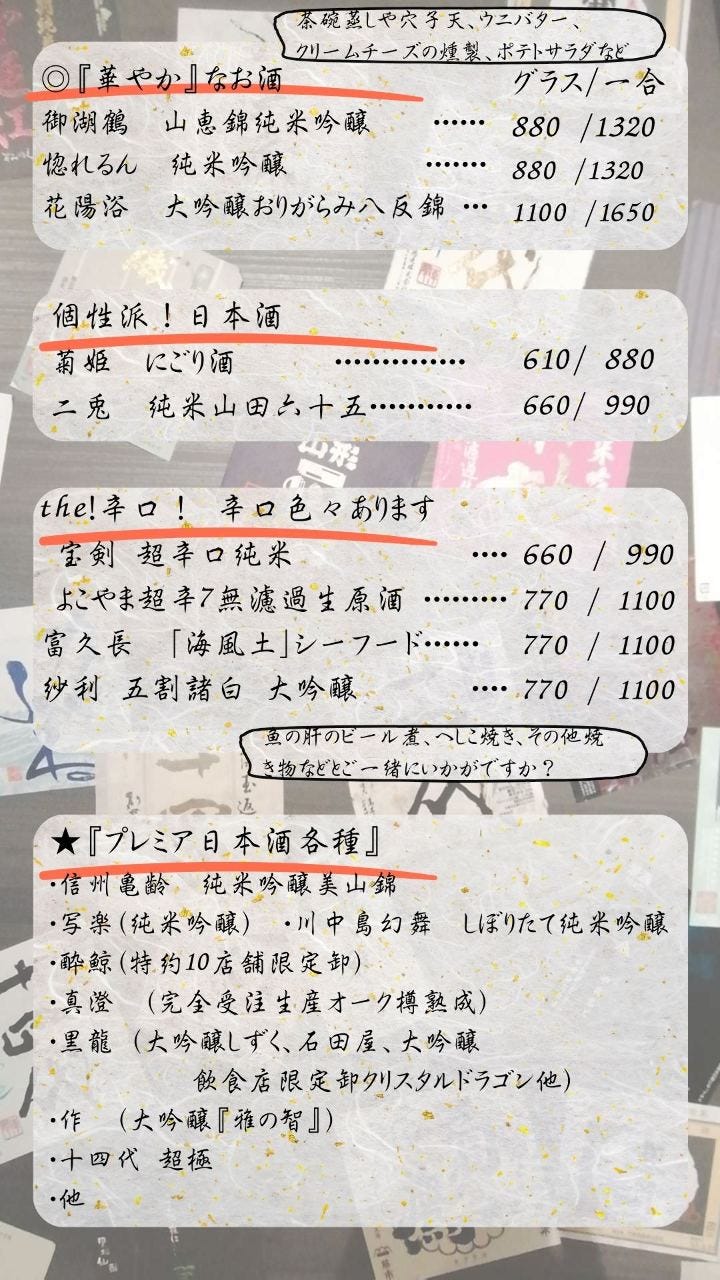 茶碗蒸しや穴子天、ウニバター、
クリームチーズの燻製、ポテトサラダなど
◎『華やか』なお酒 グラス/一合
御湖鶴 山恵錦純米吟醸 …… 880 /1320
惚れるん 純米吟醸 ……. 880 /1320
花陽浴 大吟醸おりがらみ八反錦 … 1100 /1650
個性派！日本酒
菊姫 にごり酒 ………….. 610/ 880
二兎 純米山田六十五……….. 660/ 990
the!辛口！ 辛口色々あります
宝剣 超辛口純米 …. 660 / 990
よこやま超辛7無濾過生原酒 ……… 770 / 1100
富久長 「海風土」シーフード…… 770 / 1100
紗利 五割諸白 大吟醸 …. 770 / 1100
魚の肝のビール煮、へしこ焼き、その他焼
き物などとご一緒にいかがですか？
★『プレミア日本酒各種』
・信州亀齢 純米吟醸美山錦
・写楽(純米吟醸) ・川中島幻舞 しぼりたて純米吟醸
・酔鯨(特約10店舗限定卸)
・真澄 (完全受注生産オーク樽熟成)
・黒龍 (大吟醸しずく、石田屋、大吟醸
飲食店限定卸クリスタルドラゴン他)
・作 (大吟醸『雅の智』)
・十四代 超極
・他